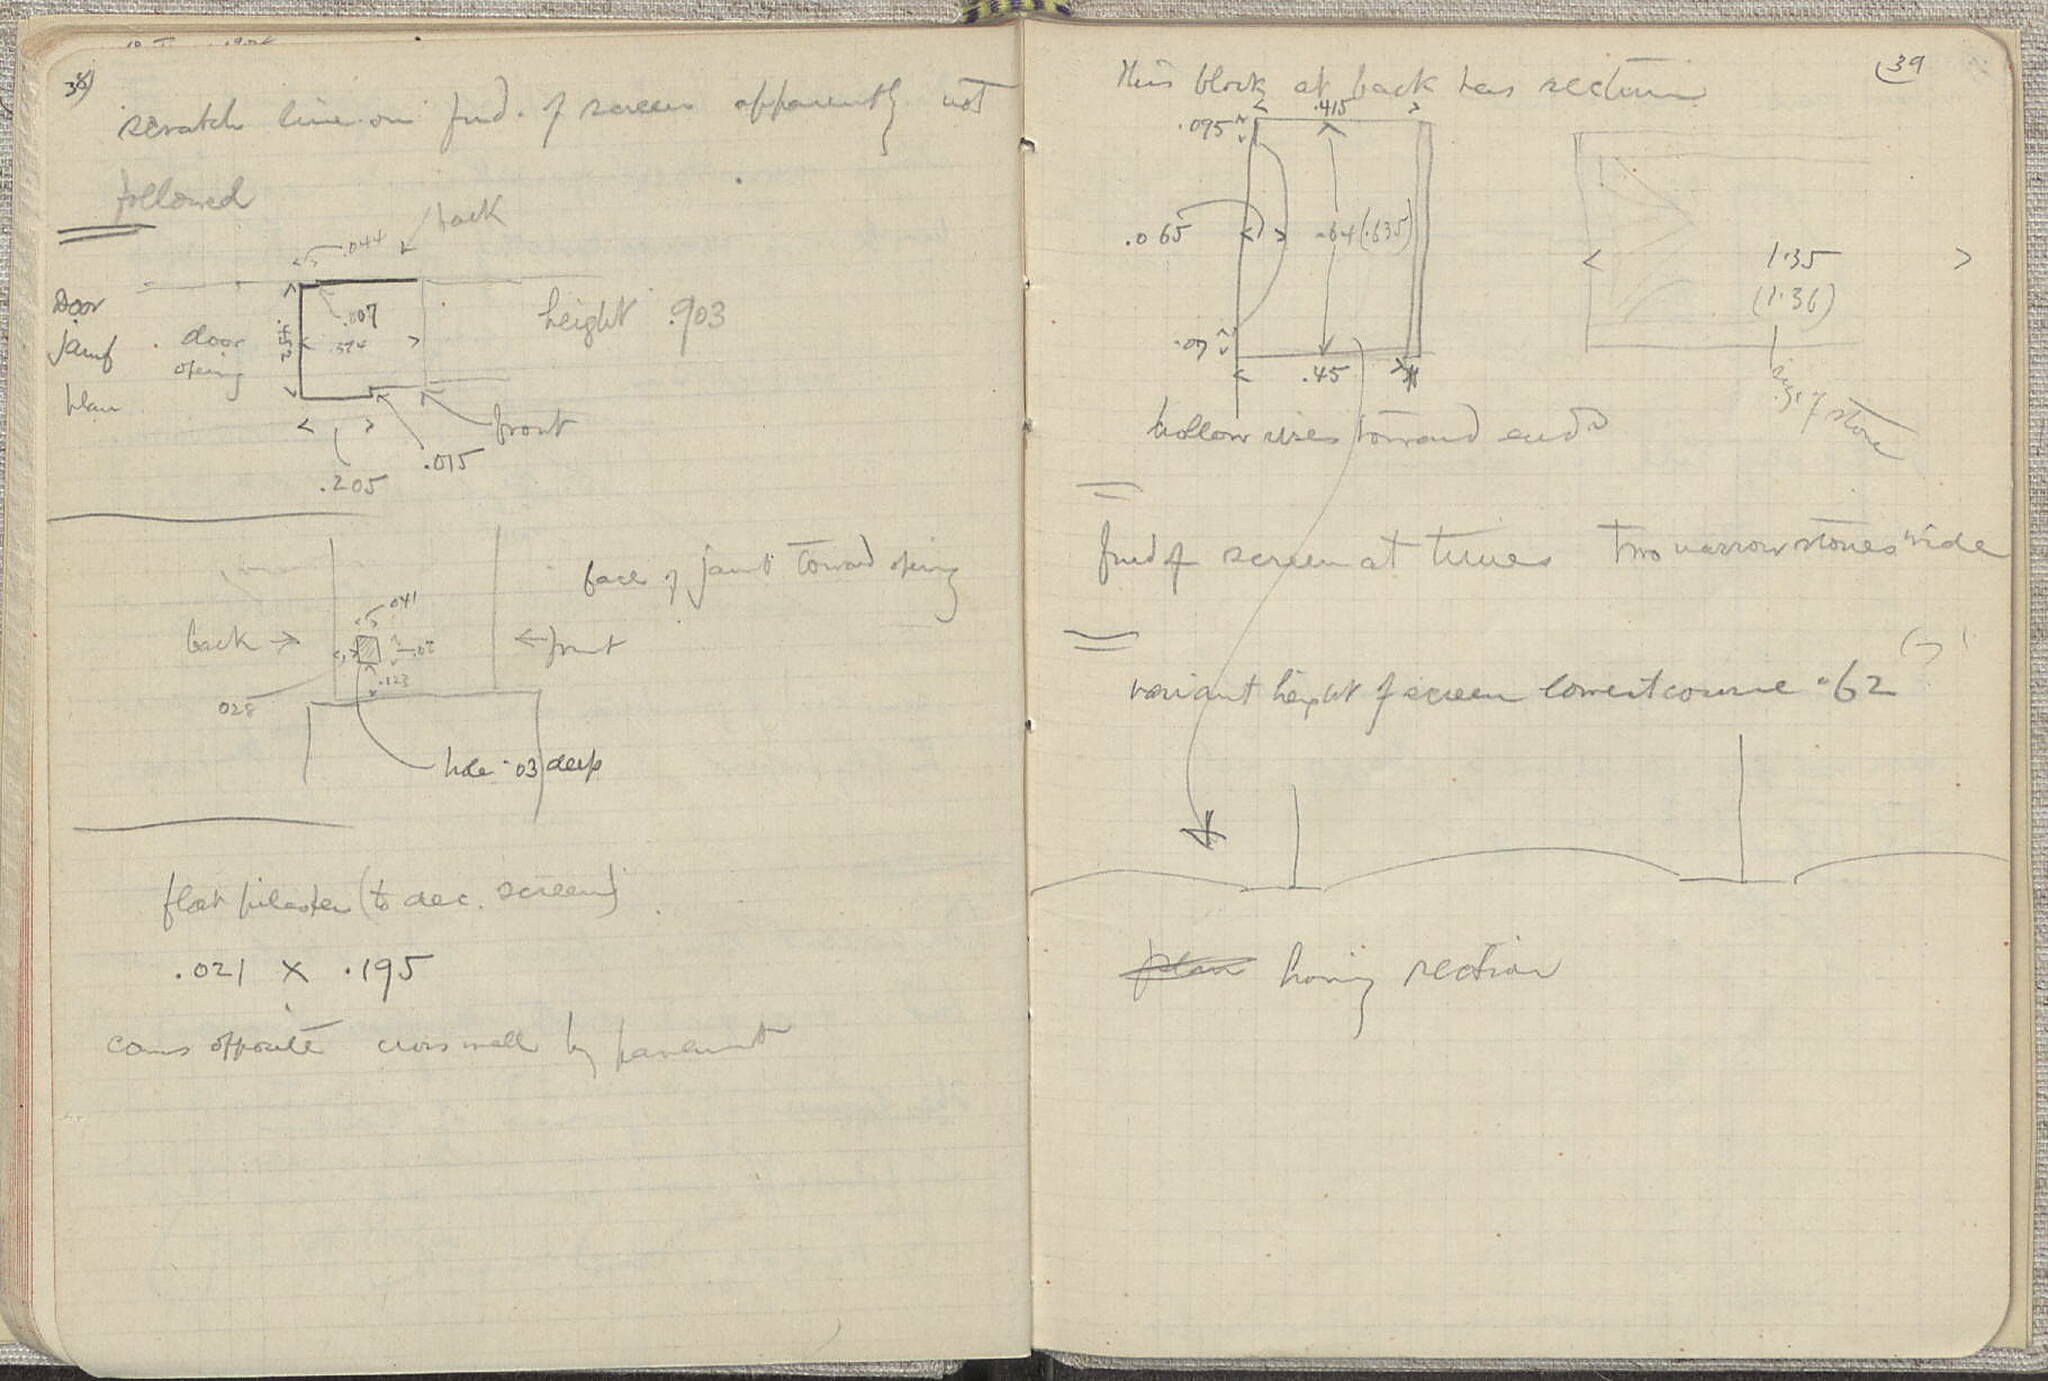 38)
scratch line on fnd. of screen apparently not
followed
back
.044
Door
jamb
plan
door
opening
.007
.374
height .903
front
.015
.205
face of jamb toward opening
.041
back →
← front
.123
028
hole .03 deep
flat pilaster (to dec. screen)
.021 x .195
comes opposite cross wall by pavement
39
This block at back has section
.415
.095
.065
.64 (.635)
.07
.45
1.35
(1.36)
size of stone
hollow rises toward ends
fnd of screen at times two narrow stones wide
variant height of screen lowest course .62
plan horiz section